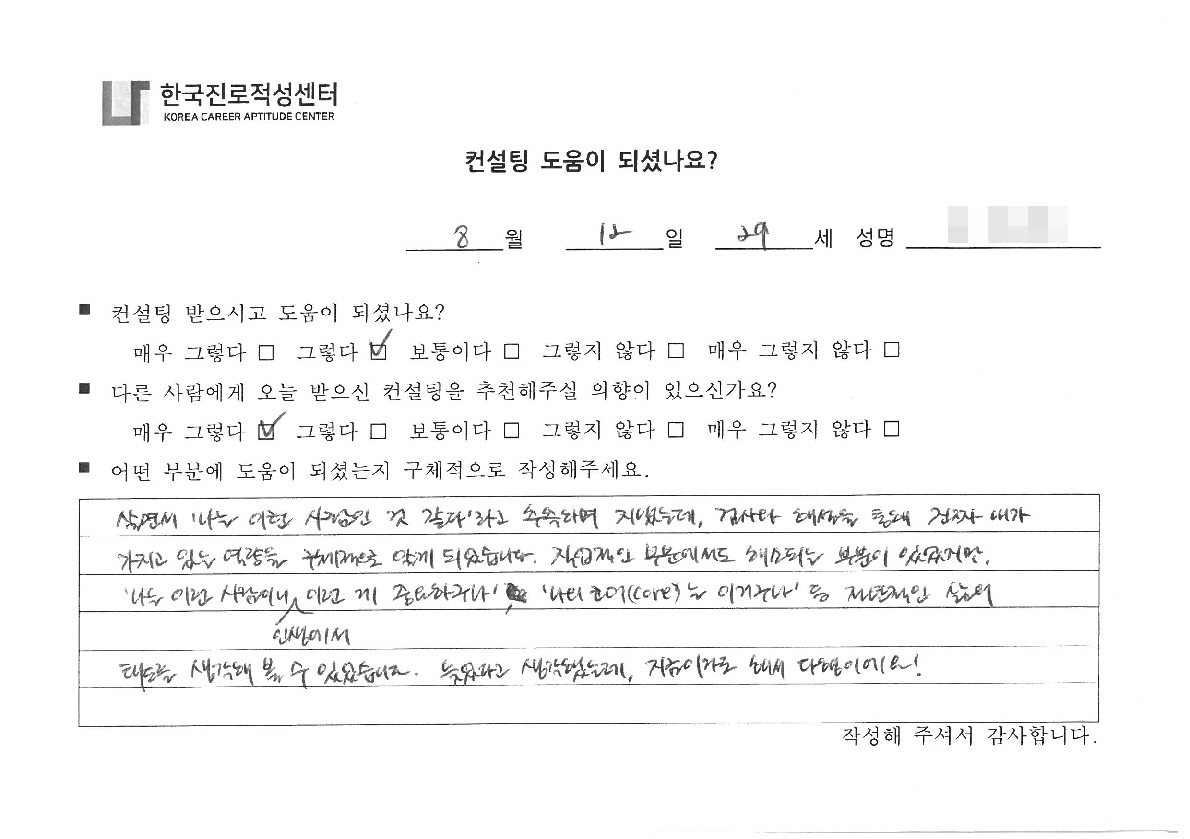 한국진로적성센터
KOREA CAREER APTITUDE CENTER
컨설팅 도움이 되셨나요?
8 월 12 일 29 세 성명
■ 컨설팅 받으시고 도움이 되셨나요?
매우 그렇다 □ 그렇다 ☑ 보통이다 □ 그렇지 않다 □ 매우 그렇지 않다 □
■ 다른 사람에게 오늘 받으신 컨설팅을 추천해주실 의향이 있으신가요?
매우 그렇다 ☑ 그렇다 □ 보통이다 □ 그렇지 않다 □ 매우 그렇지 않다 □
■ 어떤 부분에 도움이 되셨는지 구체적으로 작성해주세요.
살면서 '나는 이런 사람인 것 같다'라고 추측하며 지냈는데, 검사와 해석을 통해 진짜 내가
가지고 있는 역량들을 구체적으로 알게 되었습니다. 직업적인 부분에서도 해소되는 부분이 있었지만,
'나는 이런 사람이니 이런 게 중요하구나', '나의 코어(core)는 이거구나' 등 전반적인 삶의
인생에서
태도를 생각해 볼 수 있었습니다. 늦었다고 생각했는데, 지금이라도 해서 다행이에요!
작성해 주셔서 감사합니다.